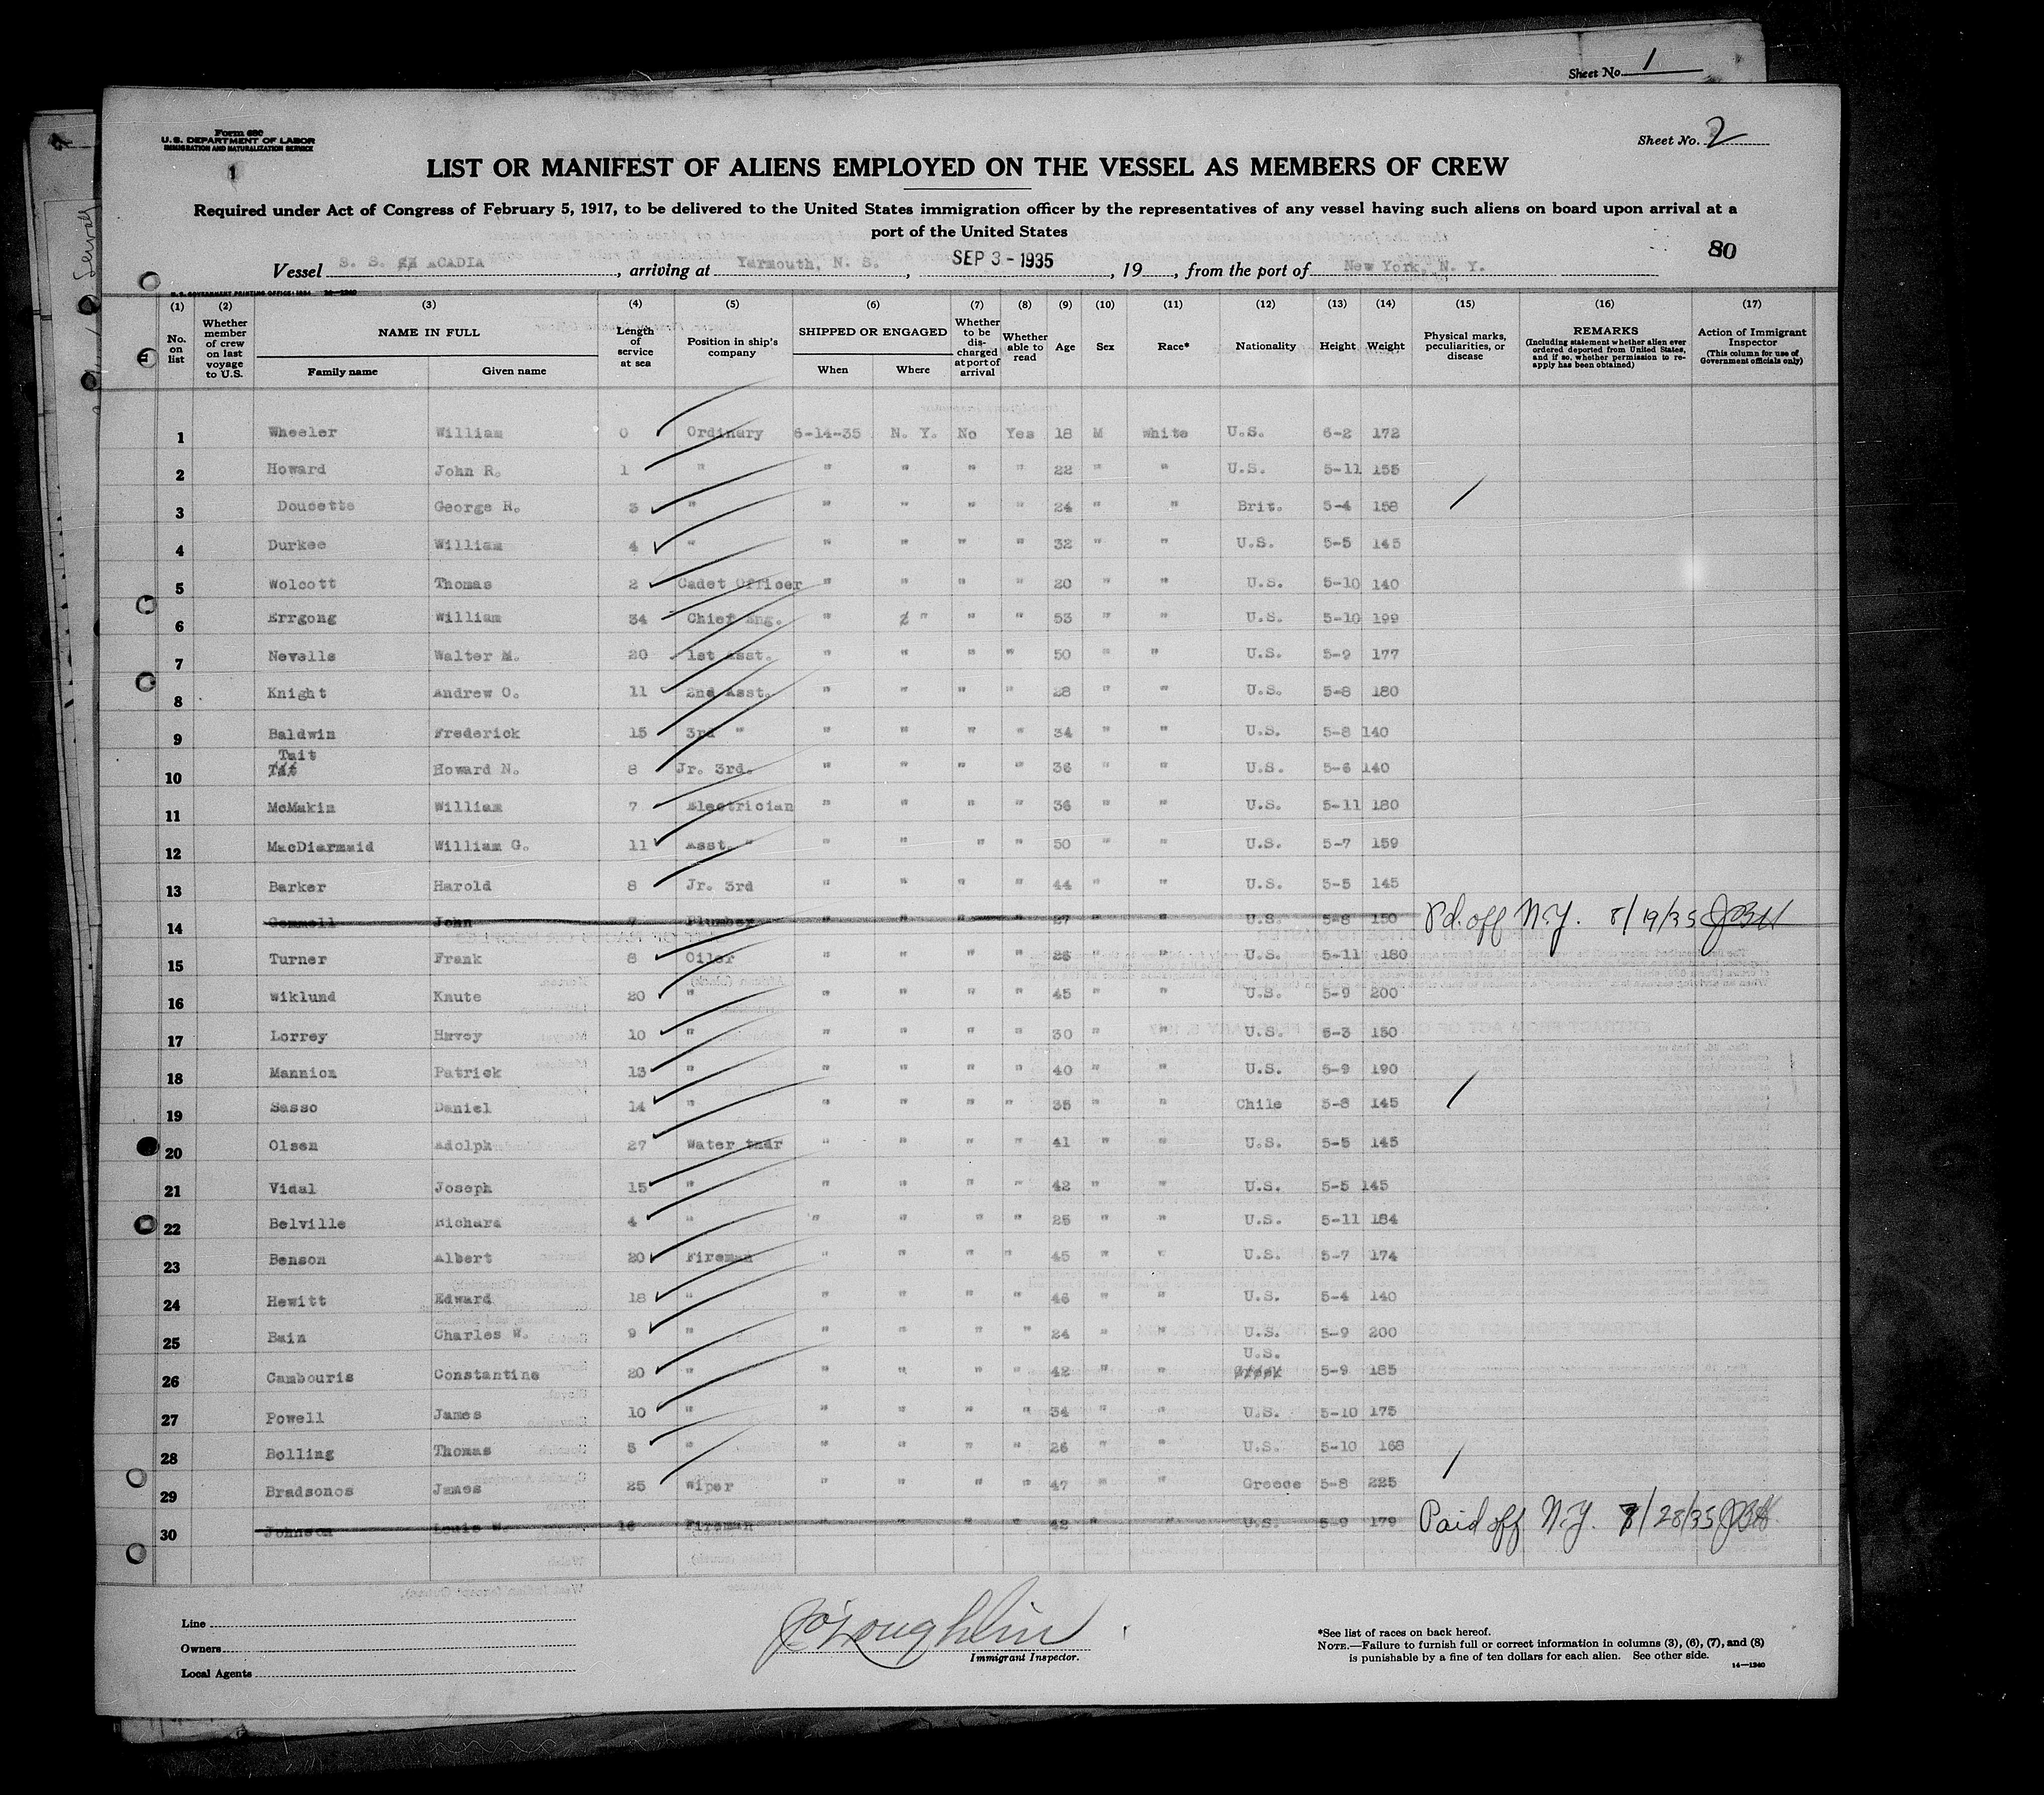 Sheet No. 1
Form 680
U. S. DEPARTMENT OF LABOR
IMMIGRATION AND NATURALIZATION SERVICE
1
Sheet No. 2
LIST OR MANIFEST OF ALIENS EMPLOYED ON THE VESSEL AS MEMBERS OF CREW
Required under Act of Congress of February 5, 1917, to be delivered to the United States immigration officer by the representatives of any vessel having such aliens on board upon arrival at a
port of the United States
80
Vessel S. S. ACADIA, arriving at Yarmouth, N. S., SEP 3 - 1935, 19, from the port of New York, N. Y.
U. S. GOVERNMENT PRINTING OFFICE: 1934 14—1240
(1) (2) (3) (4) (5) (6) (7) (8) (9) (10) (11) (12) (13) (14) (15) (16) (17)
No. on list
Whether member of crew on last voyage to U.S.
NAME IN FULL
Family name
Given name
Length of service at sea
Position in ship's company
SHIPPED OR ENGAGED
When
Where
Whether to be discharged at port of arrival
Whether able to read
Age
Sex
Race*
Nationality
Height
Weight
Physical marks, peculiarities, or disease
REMARKS
(Including statement whether alien ever ordered deported from United States, and if so, whether permission to reapply has been obtained)
Action of Immigrant Inspector
(This column for use of Government officials only)
1 Wheeler William 0 Ordinary 6-14-35 N. Y. No Yes 18 M White U.S. 6-2 172
2 Howard John R. 1 " " " " " 22 " " U.S. 5-11 155
3 Doucette George H. 3 " " " " " 24 " " Brit. 5-4 158
4 Durkee William 4 " " " " " 32 " " U.S. 5-5 145
5 Wolcott Thomas 2 Cadet Officer " " " " 20 " " U.S. 5-10 140
6 Errgong William 34 Chief Eng. " " " " 53 " " U.S. 5-10 199
7 Nevells Walter M. 20 1st Asst. " " " " 50 " " U.S. 5-9 177
8 Knight Andrew O. 11 2nd Asst. " " " " 28 " " U.S. 5-8 180
9 Baldwin Frederick 15 3rd " " " " " 34 " " U.S. 5-8 140
Tait
10 Tat Howard N. 8 Jr. 3rd. " " " " 36 " " U.S. 5-6 140
11 McMakin William 7 Electrician " " " " 36 " " U.S. 5-11 180
12 MacDiarmaid William G. 11 Asst. " " " " " 50 " " U.S. 5-7 159
13 Barker Harold 8 Jr. 3rd " " " " 44 " " U.S. 5-5 145
14 Gemmell John 7 Plumber " " " " 27 " " U.S. 5-8 150 Pd. off N.Y. 8/19/35 JBH
15 Turner Frank 8 Oiler " " " " 26 " " U.S. 5-11 180
16 Wiklund Knute 20 " " " " " 45 " " U.S. 5-9 200
17 Lorrey Havey 10 " " " " " 30 " " U.S. 5-3 150
18 Mannion Patrick 13 " " " " " 40 " " U.S. 5-9 190
19 Sasso Daniel 14 " " " " " 35 " " Chile 5-8 145
20 Olsen Adolph 27 Water tndr " " " " 41 " " U.S. 5-5 145
21 Vidal Joseph 15 " " " " " 42 " " U.S. 5-5 145
22 Belville Richard 4 " " " " " 25 " " U.S. 5-11 184
23 Benson Albert 20 Fireman " " " " 45 " " U.S. 5-7 174
24 Hewitt Edward 18 " " " " " 46 " " U.S. 5-4 140
25 Bain Charles W. 9 " " " " " 24 " " U.S. 5-9 200
U.S.
26 Cambouris Constantine 20 " " " " " 42 " " Greek 5-9 185
27 Powell James 10 " " " " " 34 " " U.S. 5-10 175
28 Bolling Thomas 5 " " " " " 26 " " U.S. 5-10 168
29 Bradsonos James 25 Wiper " " " " 47 " " Greece 5-8 225
30 Johnson Louis W. 16 Fireman " " " " 42 " " U.S. 5-9 179 Paid off N.Y. 8/28/35 JBH
Line
Owners
Local Agents
JO'Loughlin
Immigrant Inspector.
*See list of races on back hereof.
NOTE.—Failure to furnish full or correct information in columns (3), (6), (7), and (8)
is punishable by a fine of ten dollars for each alien. See other side.
14—1240